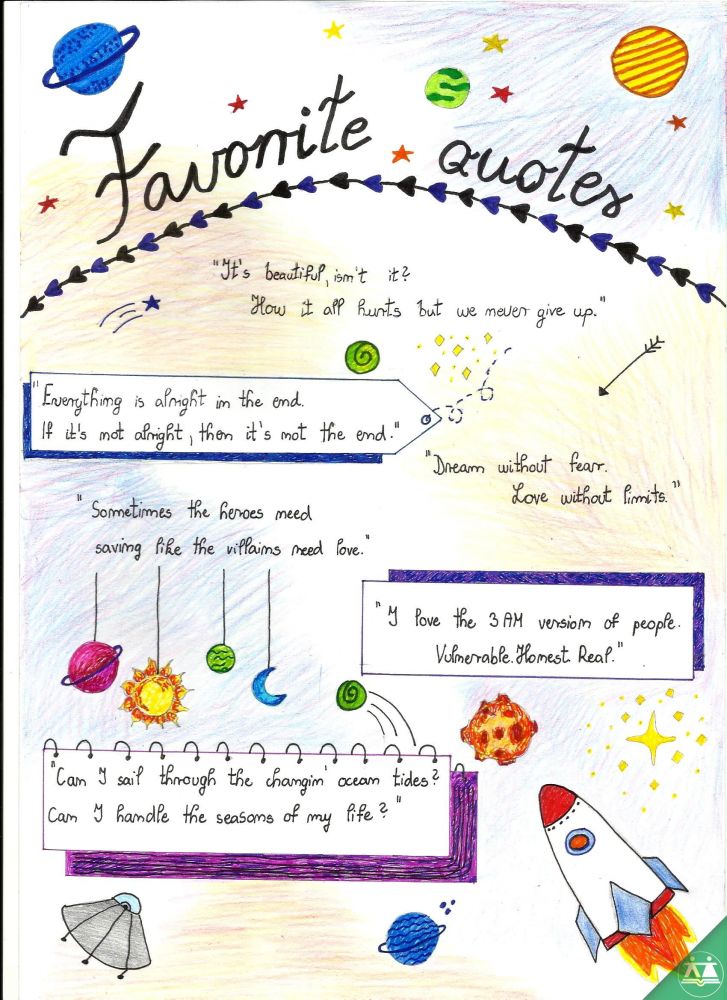 Favorite quotes
"It's beautiful, isn't it?
How it all hurts but we never give up."
"Everything is alright in the end.
If it's not alright, then it's not the end."
"Dream without fear.
Love without limits."
"Sometimes the heroes need
saving like the villains need love."
"I love the 3 AM version of people.
Vulnerable. Honest. Real."
"Can I sail through the changin' ocean tides?
Can I handle the seasons of my life?"